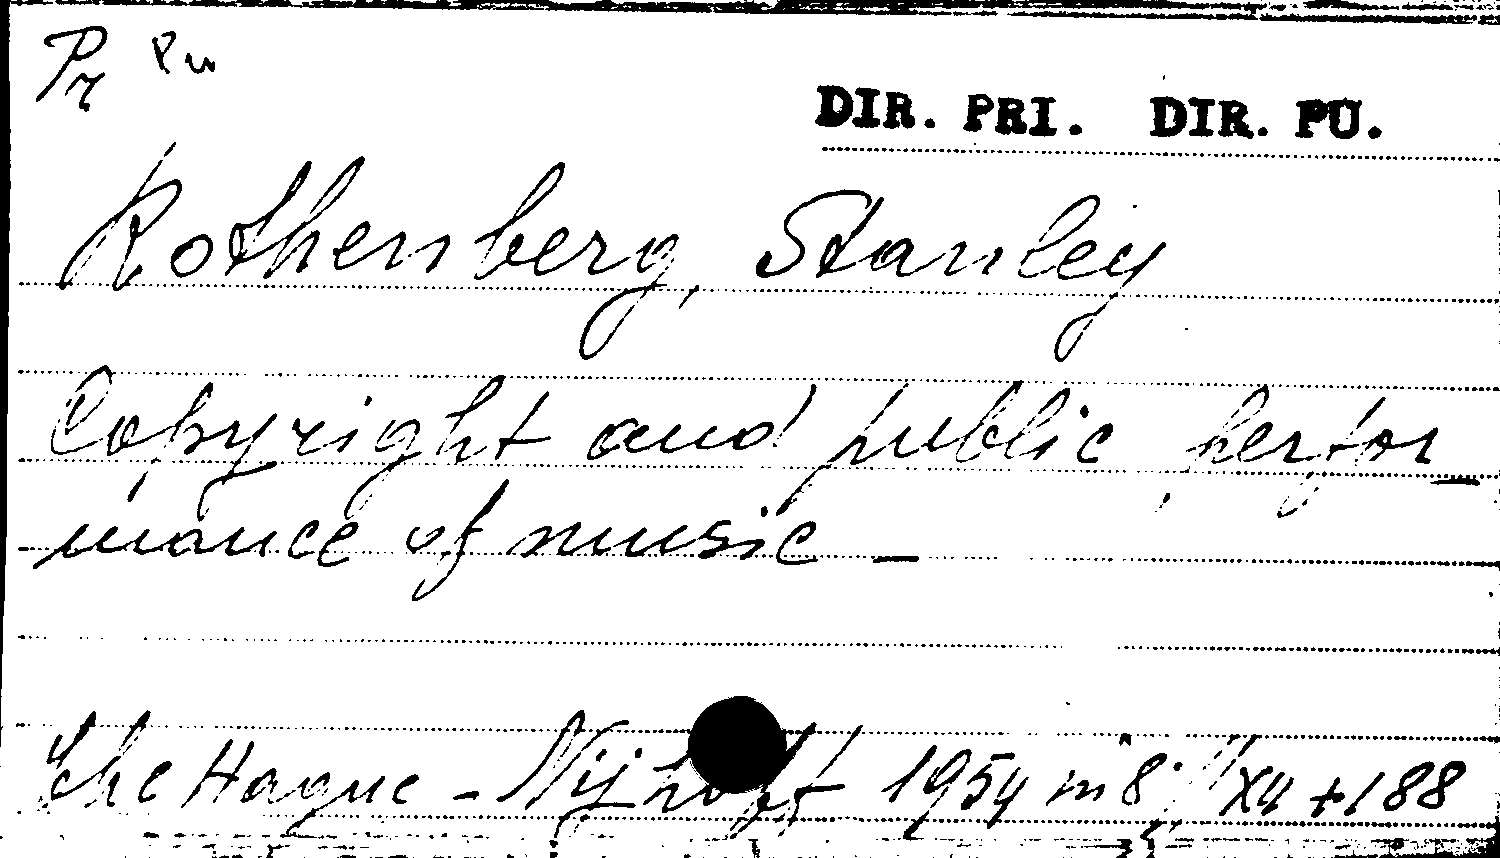 Pr Pu
DIR. PRI. DIR. PU.
Rothenberg, Stanley
Copyright and public perfor_
mance of music _
The Hague - Nijhoff 1954 in 8°